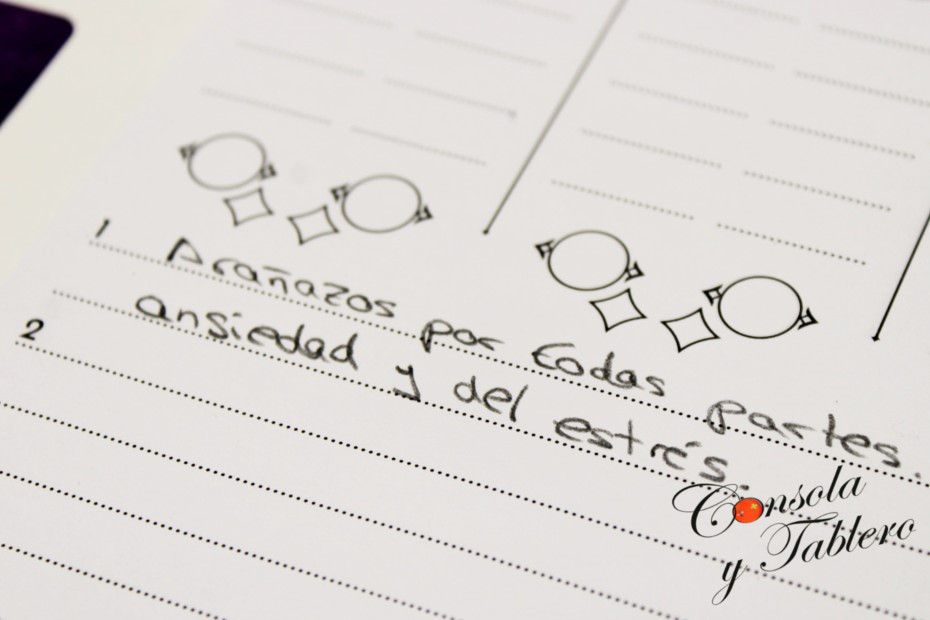 1 Arañazos por todas partes.
ansiedad y del estrés.
2
Consola
y Tablero